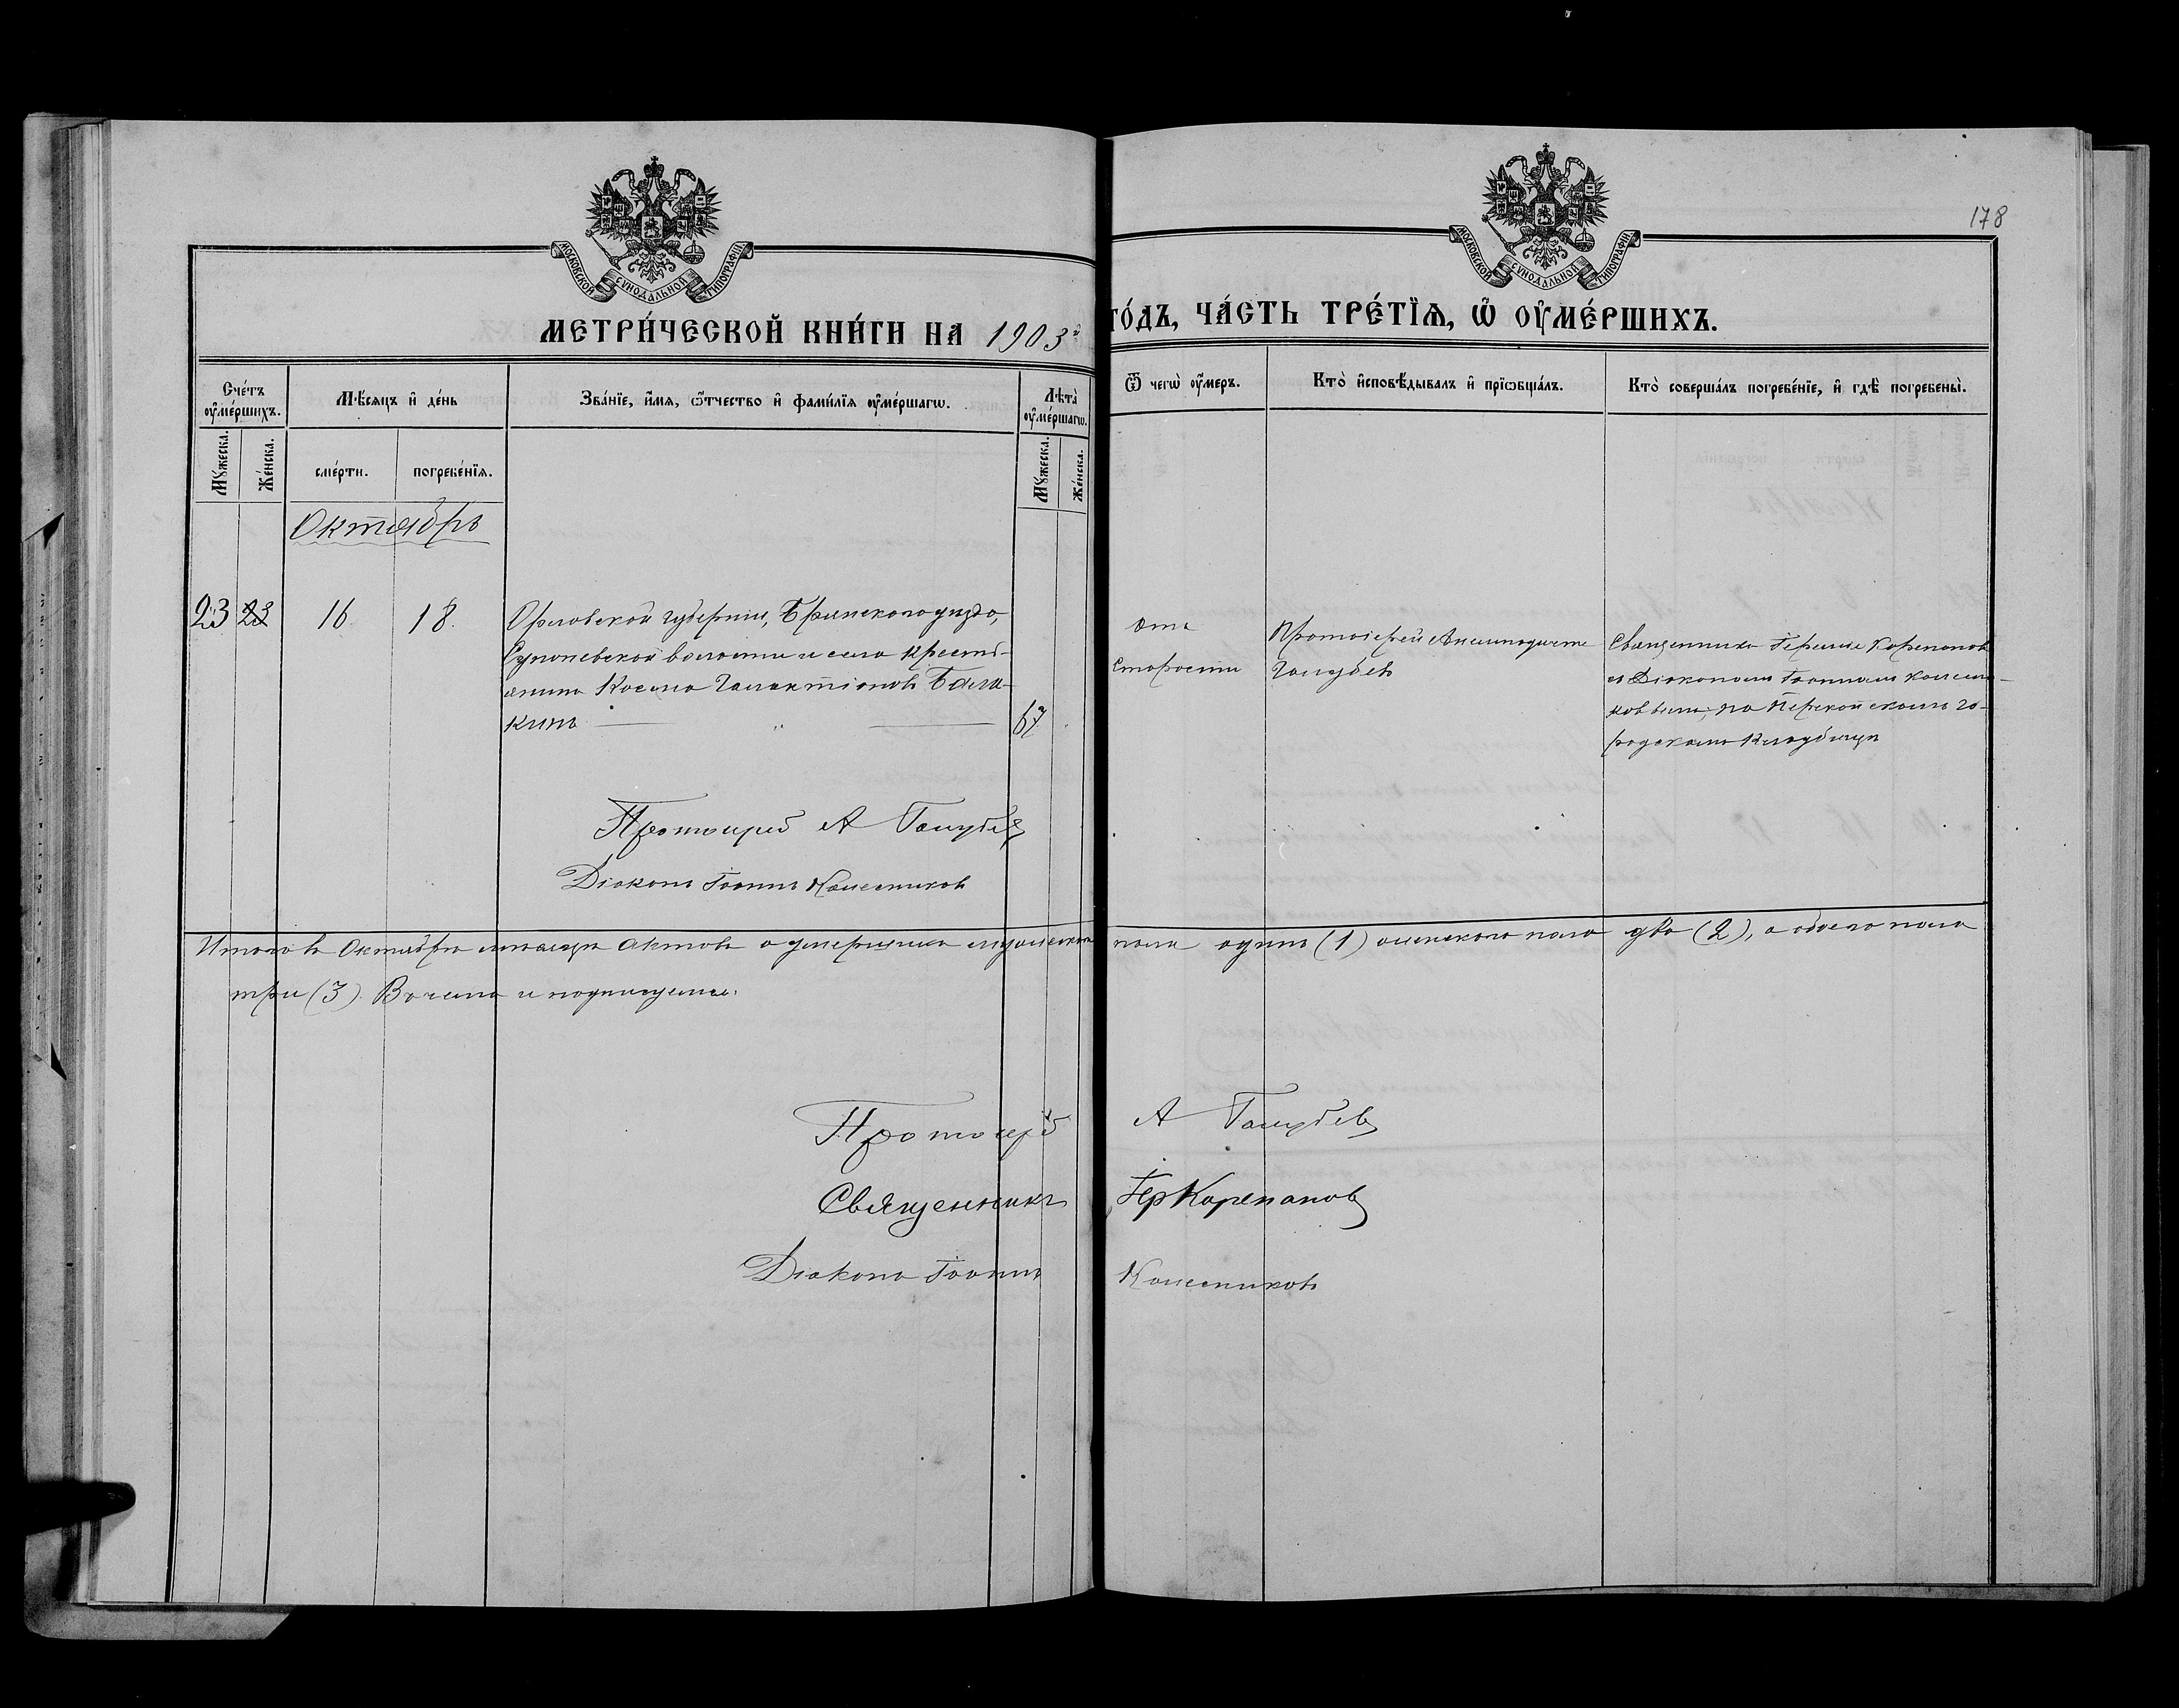 178
МОСКОВСКОЙ СѴНОДАЛЬНОЙ ТИПОГРАФІИ
МОСКОВСКОЙ СѴНОДАЛЬНОЙ ТИПОГРАФІИ
МЕТРИ́ЧЕСКОЙ КНИ́ГИ НА 1903й
ГО́ДЪ, ЧА́СТЬ ТРЕ́ТЇѦ, Ѡ҆ ОУ҆МЕ́РШИХЪ.
Сче́тъ оу҆ме́ршихъ.
Мꙋ́жеска.
Же́нска.
Мѣ́сяцъ и҆ де́нь
сме́рти.
погребе́нїѧ.
Зва́нїе, и҆́мѧ, ѻ҆́тчество и҆ фами́лїѧ оу҆ме́ршагѡ.
Лѣта̀ оу҆ме́ршагѡ.
Мꙋ́жеска.
Же́нска.
Ѿ чегѡ̀ оу҆́меръ.
Кто̀ и҆сповѣ́дывалъ и҆ прїѡбща́лъ.
Кто̀ соверша́лъ погребе́нїе, и҆ гдѣ̀ погребены̀.
Октябрь
23 23 16 18
Орловской губерніи, Брянскаго уѣзда,
Супоневской волости и села крестья-
янинъ Косьма Галактіоновъ Бала-
кинъ
67
отъ
старости
Протоіерей Аполлодистъ
Голубевъ
Священникъ Герман Корепановъ
съ Діакономъ Іоанномъ Колесни-
ковымъ, на Перекопскомъ го-
родскомъ кладбищѣ
Протоіерей А Голубев
Діаконъ Іоаннъ Колесниковъ
Итого въ Октябрѣ мѣсяцѣ актовъ о умершихъ мужескаго пола одинъ (1) женскаго пола два (2), а обоего пола
три (3). Въ чемъ и подписуемся.
Протоіерей А Голубев
Священникъ Гер Корепанов
Діаконъ Іоаннъ Колесниковъ